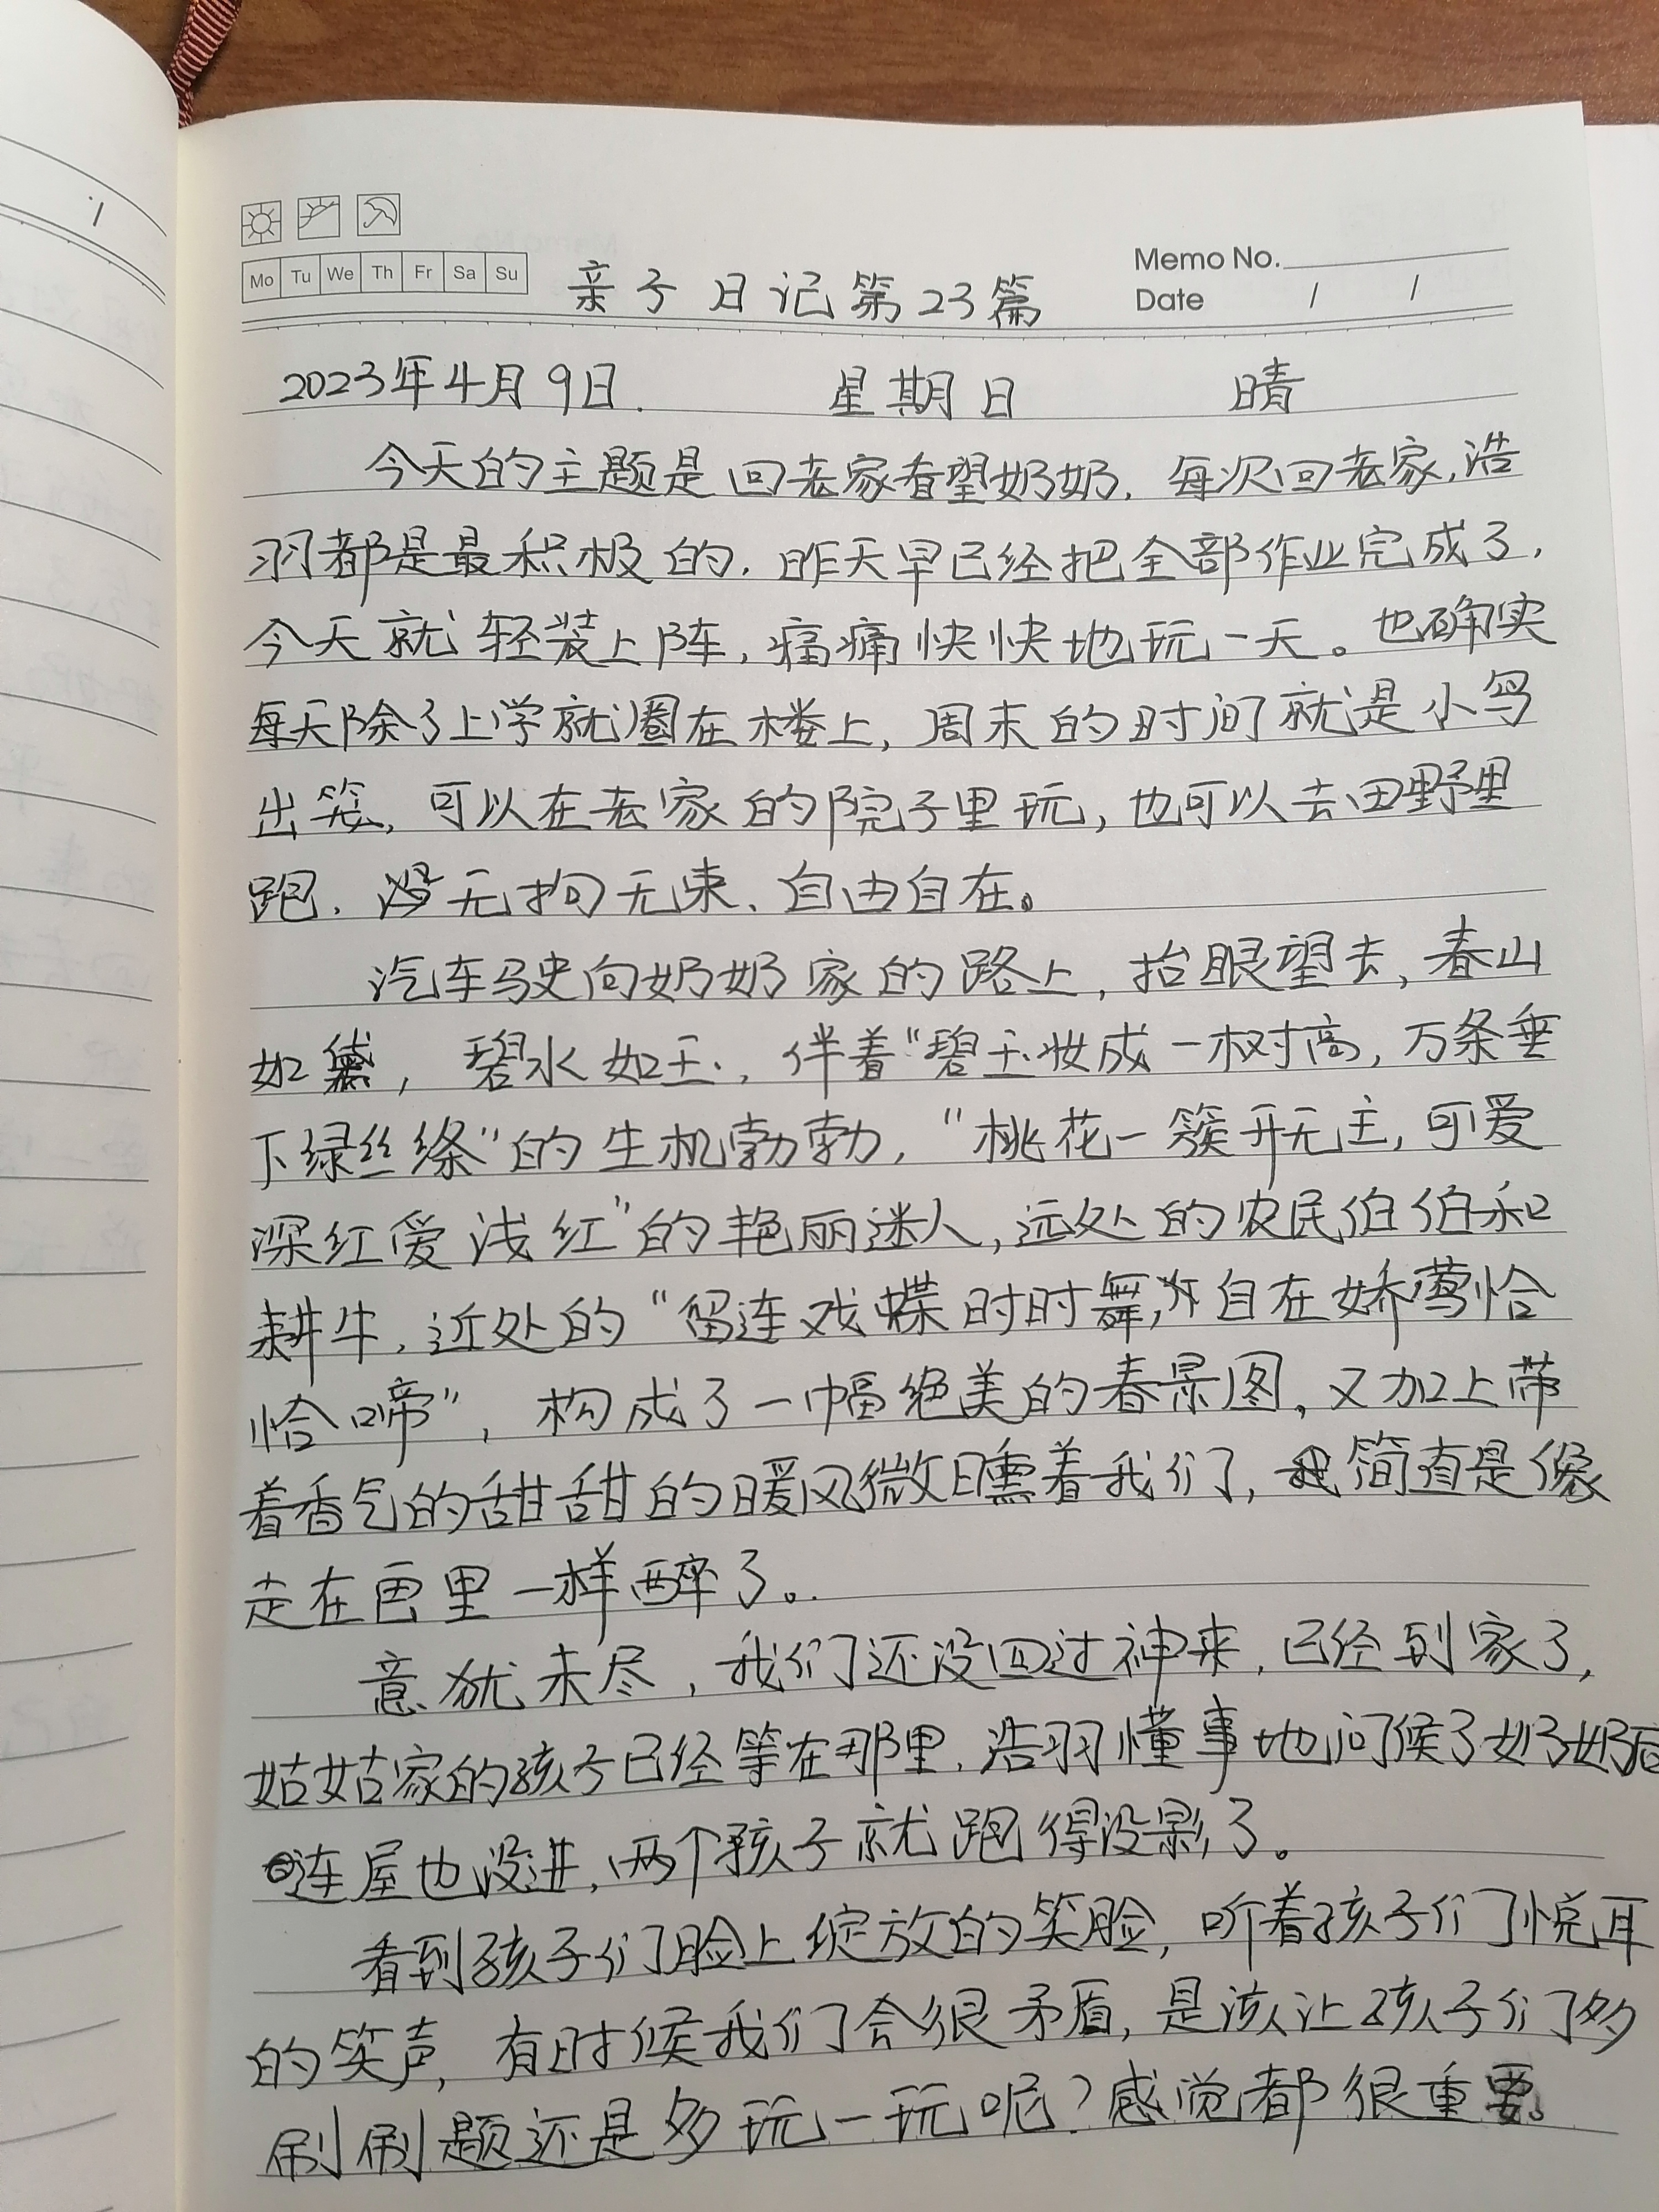 Mo Tu We Th Fr Sa Su
亲子日记第23篇
Memo No.
Date / /
2023年4月9日. 星期日 晴
今天的主题是回老家看望奶奶.每次回老家,浩
羽都是最积极的.昨天早已经把全部作业完成了,
今天就轻装上阵,痛痛快快地玩一天。也确实
每天除了上学就圈在楼上,周末的时间就是小鸟
出笼,可以在老家的院子里玩,也可以去田野里
跑.无拘无束、自由自在。
汽车驶向奶奶家的路上,抬眼望去,春山
如黛,碧水如玉.伴着“碧玉妆成一树高,万条垂
下绿丝绦”的生机勃勃,“桃花一簇开无主,可爱
深红爱浅红”的艳丽迷人,远处的农民伯伯和
耕牛,近处的“留连戏蝶时时舞,自在娇莺恰
恰啼”,构成了一幅绝美的春景图,又加上带
着香气的甜甜的暖风微曛着我们,简直是像
走在画里一样醉了。
意犹未尽,我们还没回过神来,已经到家了,
姑姑家的孩子已经等在那里.浩羽懂事地问候了奶奶后
连屋也没进,两个孩子就跑得没影了。
看到孩子们脸上绽放的笑脸,听着孩子们悦耳
的笑声,有时候我们会很矛盾,是该让孩子们多
刷刷题还是多玩一玩呢?感觉都很重要。